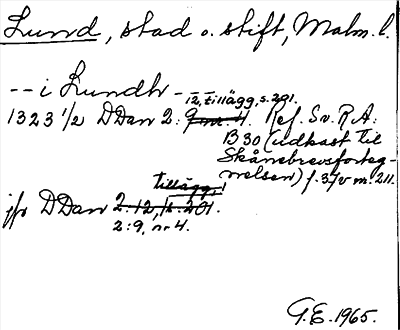 Lund, stad o. stift, Malm. l.
-- i Lundh --
12, tillägg, s. 291.
1323 1/2 DDan 2: 9 nr 4. Ref. Sv. R A:
B 30 (udkast til
Skånebrevsforteg-
nelsen) f. 37v nr. 211.
tillägg,
jfr DDan 2:12, s. 291.
2:9, nr 4.
G.E. 1965.